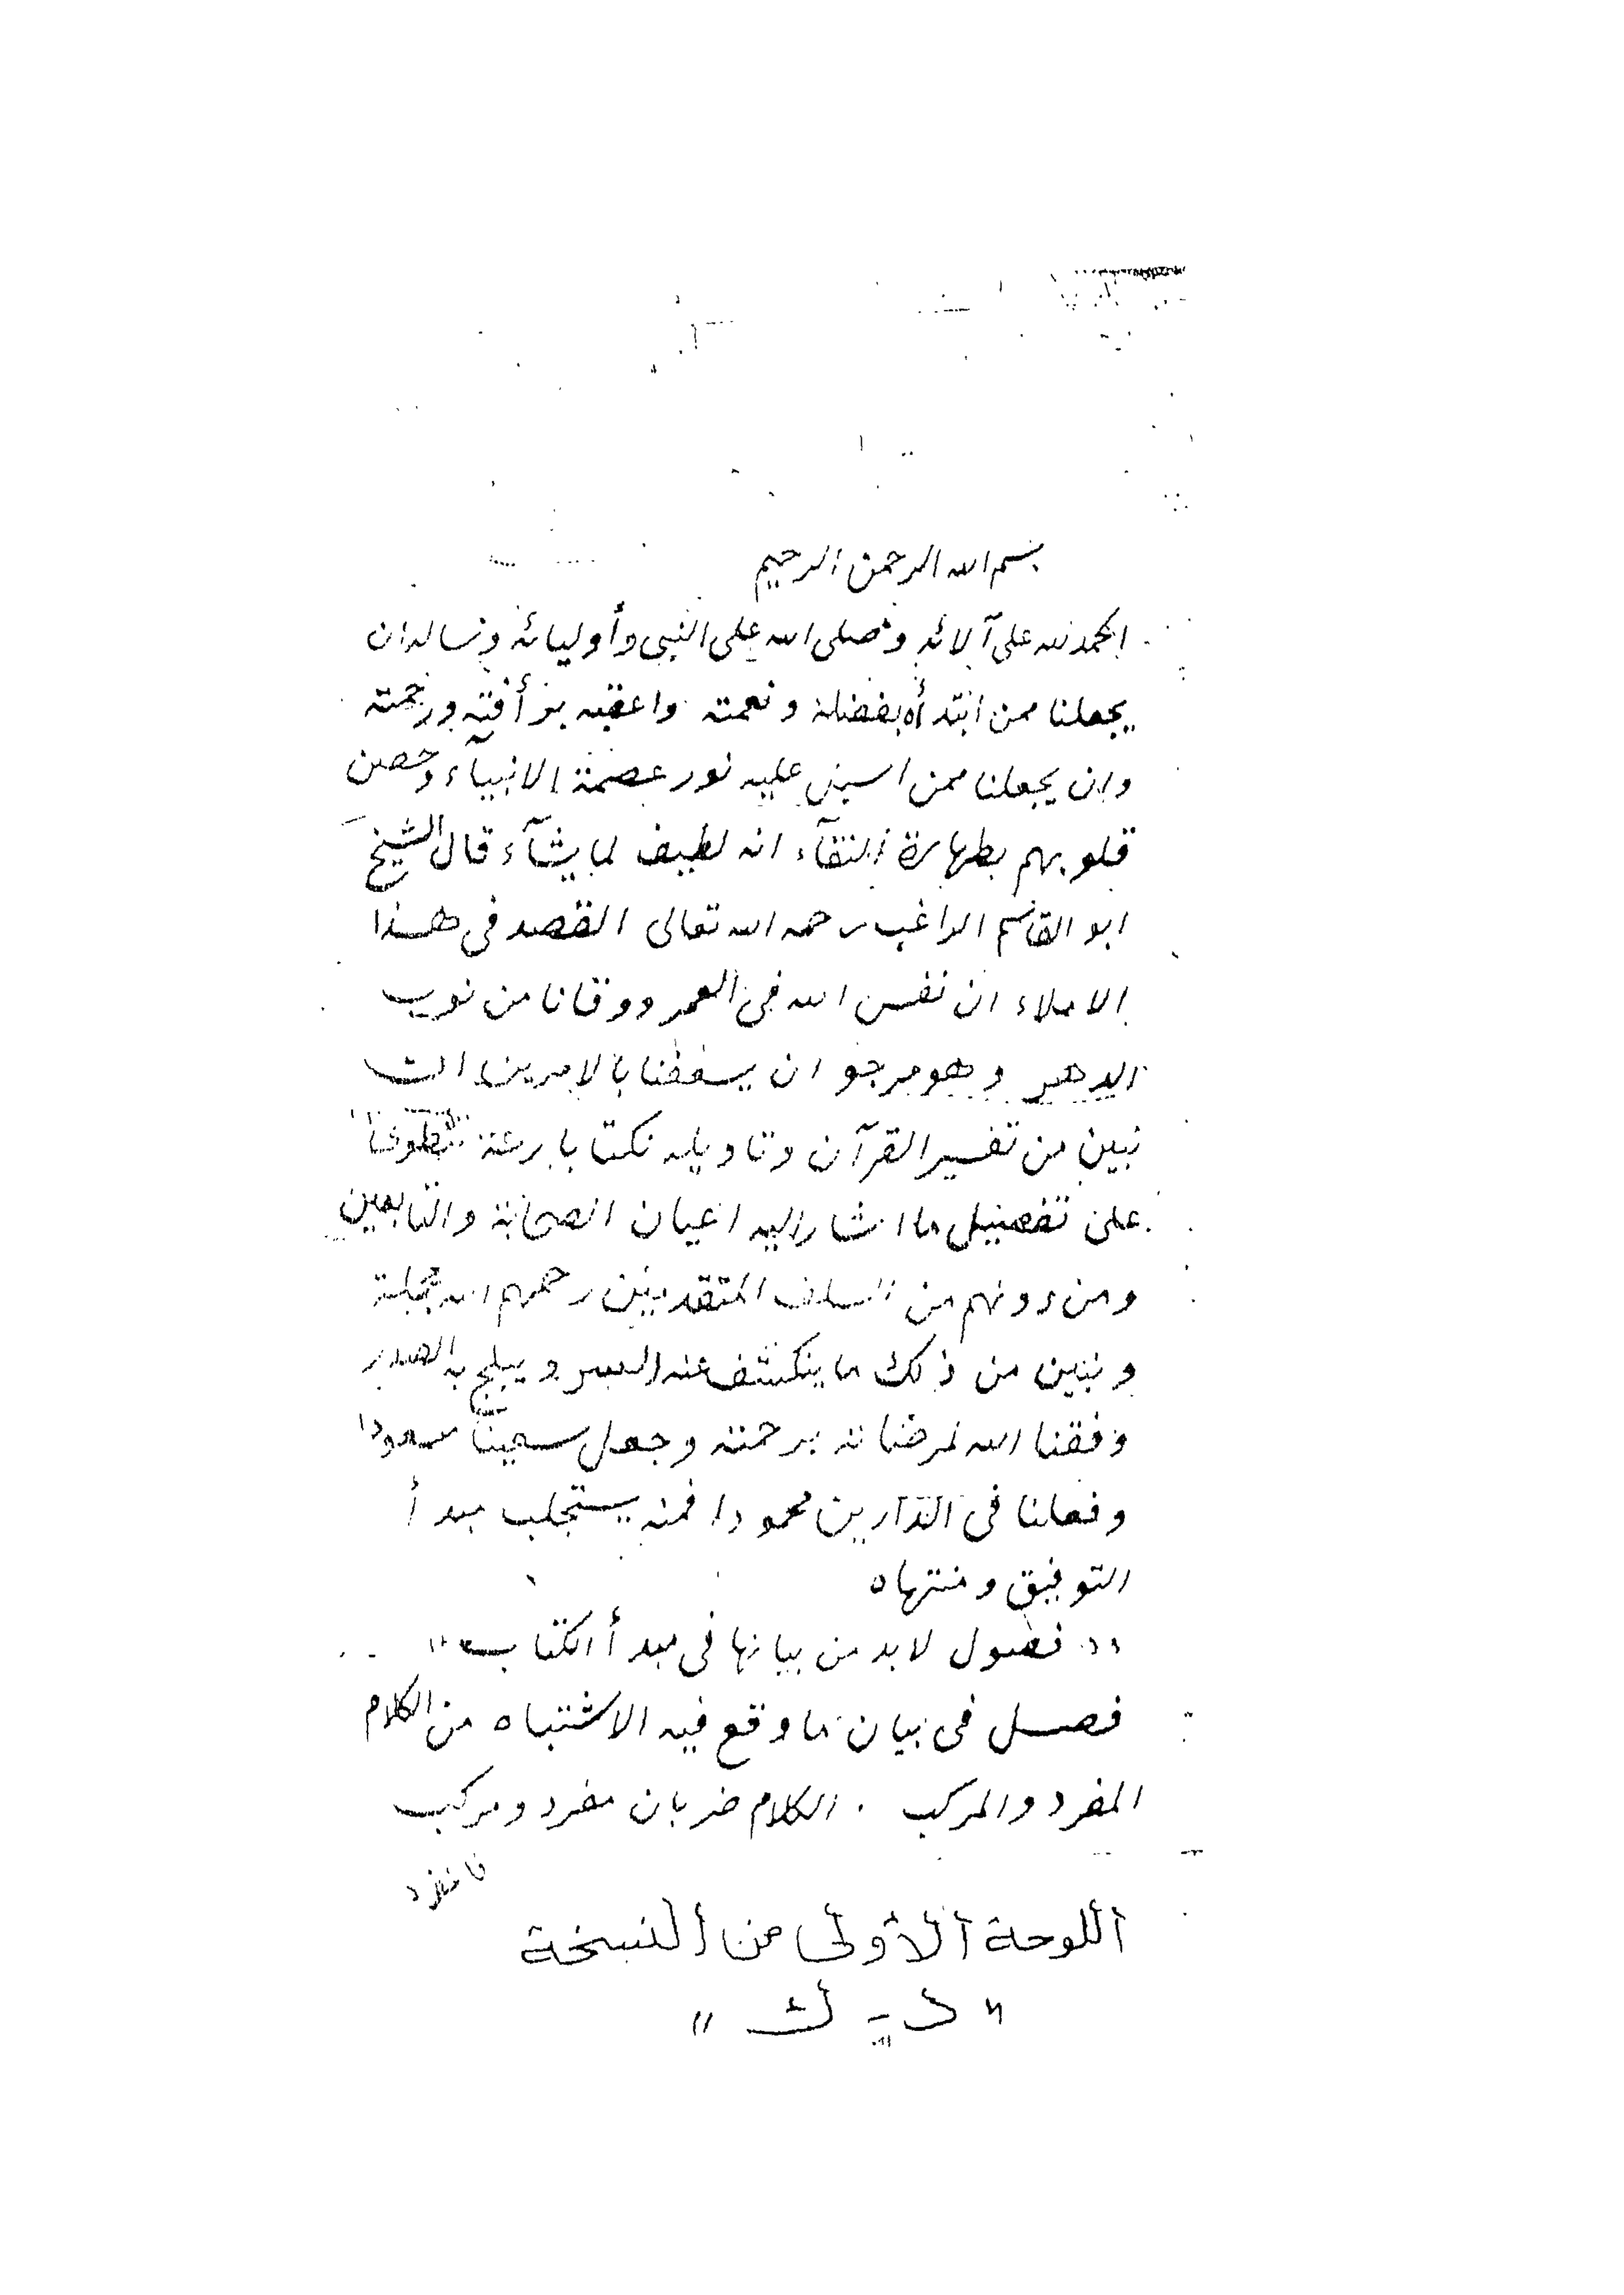 بسم الله الرحمن الرحيم
الحمد لله على آلائه وصلى الله على النبى وأوليائه ونساله ان
يجعلنا ممن ابتدأه بفضله ونعمته واعقبه برأفته ورحمته
وان يجعلنا ممن اسبل عليه نور عصمة الانبيآء وحصن
قلوبهم بطهارة النقآء انه لطيف لما يشآء قال الشيخ
ابو القاسم الراغب رحمه الله تعالى القصد فى هذا
الاملاء ان نفس الله فى العمر ووقانا من نوب
الدهر وهو مرجو ان يسعفنا بالامرين ان
نبين من تفسير القرآن وتاويله نكتا بارعة
على تفصيل ما اشار اليه اعيان الصحابة والتابعين
ومن دونهم من السلف المتقدمين رحمهم الله مجملة
ونبين من ذلك ما ينكشف عنه السر ويبلج به الصدر
وفقنا الله لمرضاته برحمته وجعل سعينا مسعودا
وفعلنا فى الدآرين محمودا فمنه يستجلب مبدأ
التوفيق ومنتهاه
"فصول لا بد من بيانها فى مبدأ الكتاب"
فصل فى بيان ما وقع فيه الاشتباه من الكلام
المفرد والمركب . الكلام ضربان مفرد ومركب
فا لمفرد
أللوحة ألأولى من ألنسخة